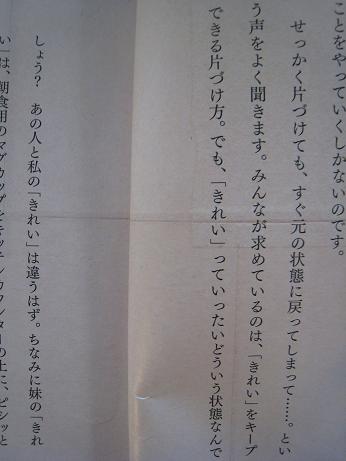 ことをやっていくしかないのです。
せっかく片づけても、すぐ元の状態に戻ってしまって……。とい
う声をよく聞きます。みんなが求めているのは、「きれい」をキープ
できる片づけ方。でも、「きれい」っていったいどういう状態なんで
しょう？　あの人と私の「きれい」は違うはず。ちなみに妹の「きれ
い」は、朝食用のマグカップをキッチンカウンターの上に、ピシッと